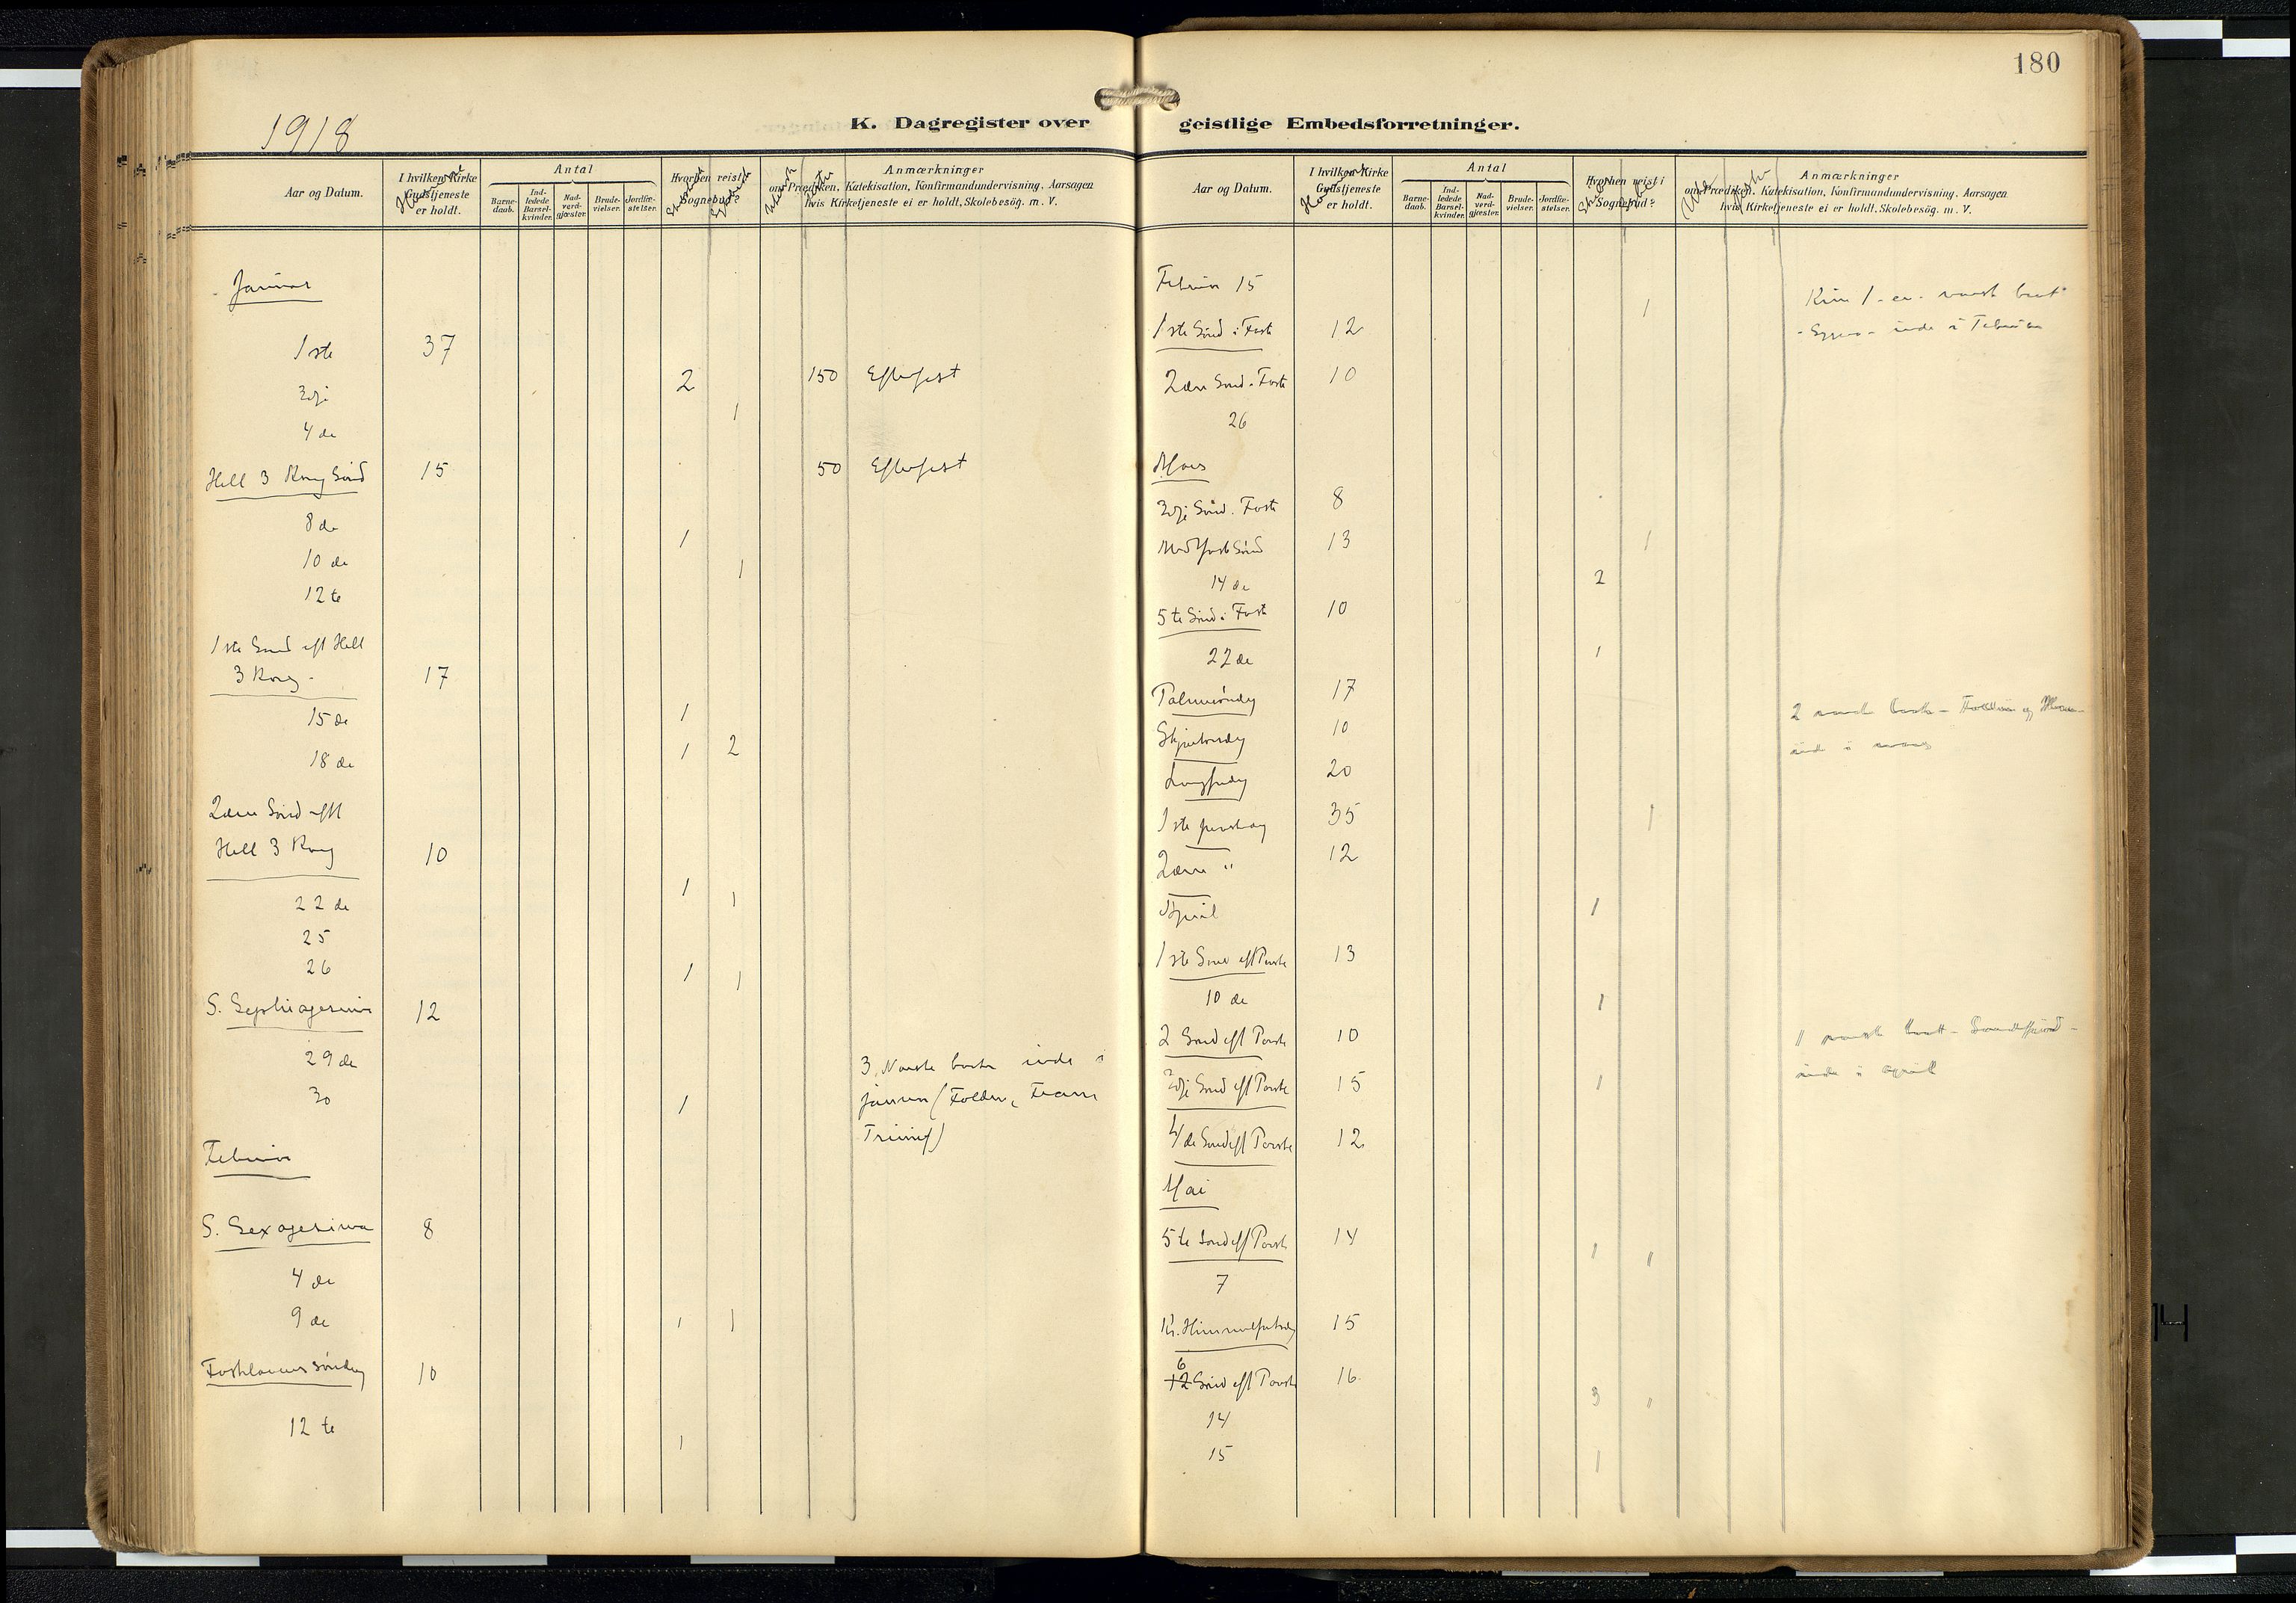 180
1918
K. Dagregister over geistlige Embedsforretninger.
Aar og Datum.
I hvilken Kirke Gudstjeneste er holdt.
Antal
Barne-daab.
Ind-ledede Barsel-kvinder.
Nad-verd-gjæster.
Brude-vielser.
Jordfæ-stelser.
Hvorhen reist i Sognebud?
Anmærkninger
om Prædiken, Katekisation, Konfirmandundervisning, Aarsagen
hvis Kirketjeneste ei er holdt, Skolebesög. m. V.
Januar
1ste 37
3dje 2 150 Efterfest
4de 1
Hell 3 Kong Sønd 15 50 Efterfest
8de 1
10de 1
12te
1ste Sønd eft Hell
3 Kong - 17
15de 1
18de 1 2
2den Sønd eft
Hell 3 Kong 10
22de 1 1
25
26 1 1
S. Septuagesima 12
29de 3 Norske inde i
30 1 Januar (Folden, Fram
Triumf)
Februar
S. Sexagesima 8
4de
9de 1 1
Fastelavens søndag 10
12te 1
Aar og Datum.
I hvilken Kirke Gudstjeneste er holdt.
Antal
Barne-daab.
Ind-ledede Barsel-kvinder.
Nad-verd-gjæster.
Brude-vielser.
Jordfæ-stelser.
Hvorhen reist i Sognebud?
Anmærkninger
om Prædiken, Katekisation, Konfirmandundervisning, Aarsagen
hvis Kirketjeneste ei er holdt, Skolebesög. m. V.
Februar 15 1
1ste Sønd i Faste 12 inde i Februar
2den Sønd i Faste 10
26
Mars
3dje Sønd i Faste 8
Midfaste Sønd 13 1
14de 2
5te Sønd i Faste 10
22de 1
Palmesøndag 17 2 norske
Skjærtorsdag 10 inde i mars
Langfredag 20
1ste paaskedag 35 1
2den " 12
April 1
1ste Sønd eft Paaske 13
10de 1
2 Sønd eft Paaske 10 1 norsk
3dje Sønd eft Paaske 15 1 inde i april
4de Sønd eft Paaske 12
Mai
5te Sønd eft Paaske 14 1 "
7
Kr. Himmelfartsdag 15
6
12 Sønd eft Paaske 16
14 3 "
15 1